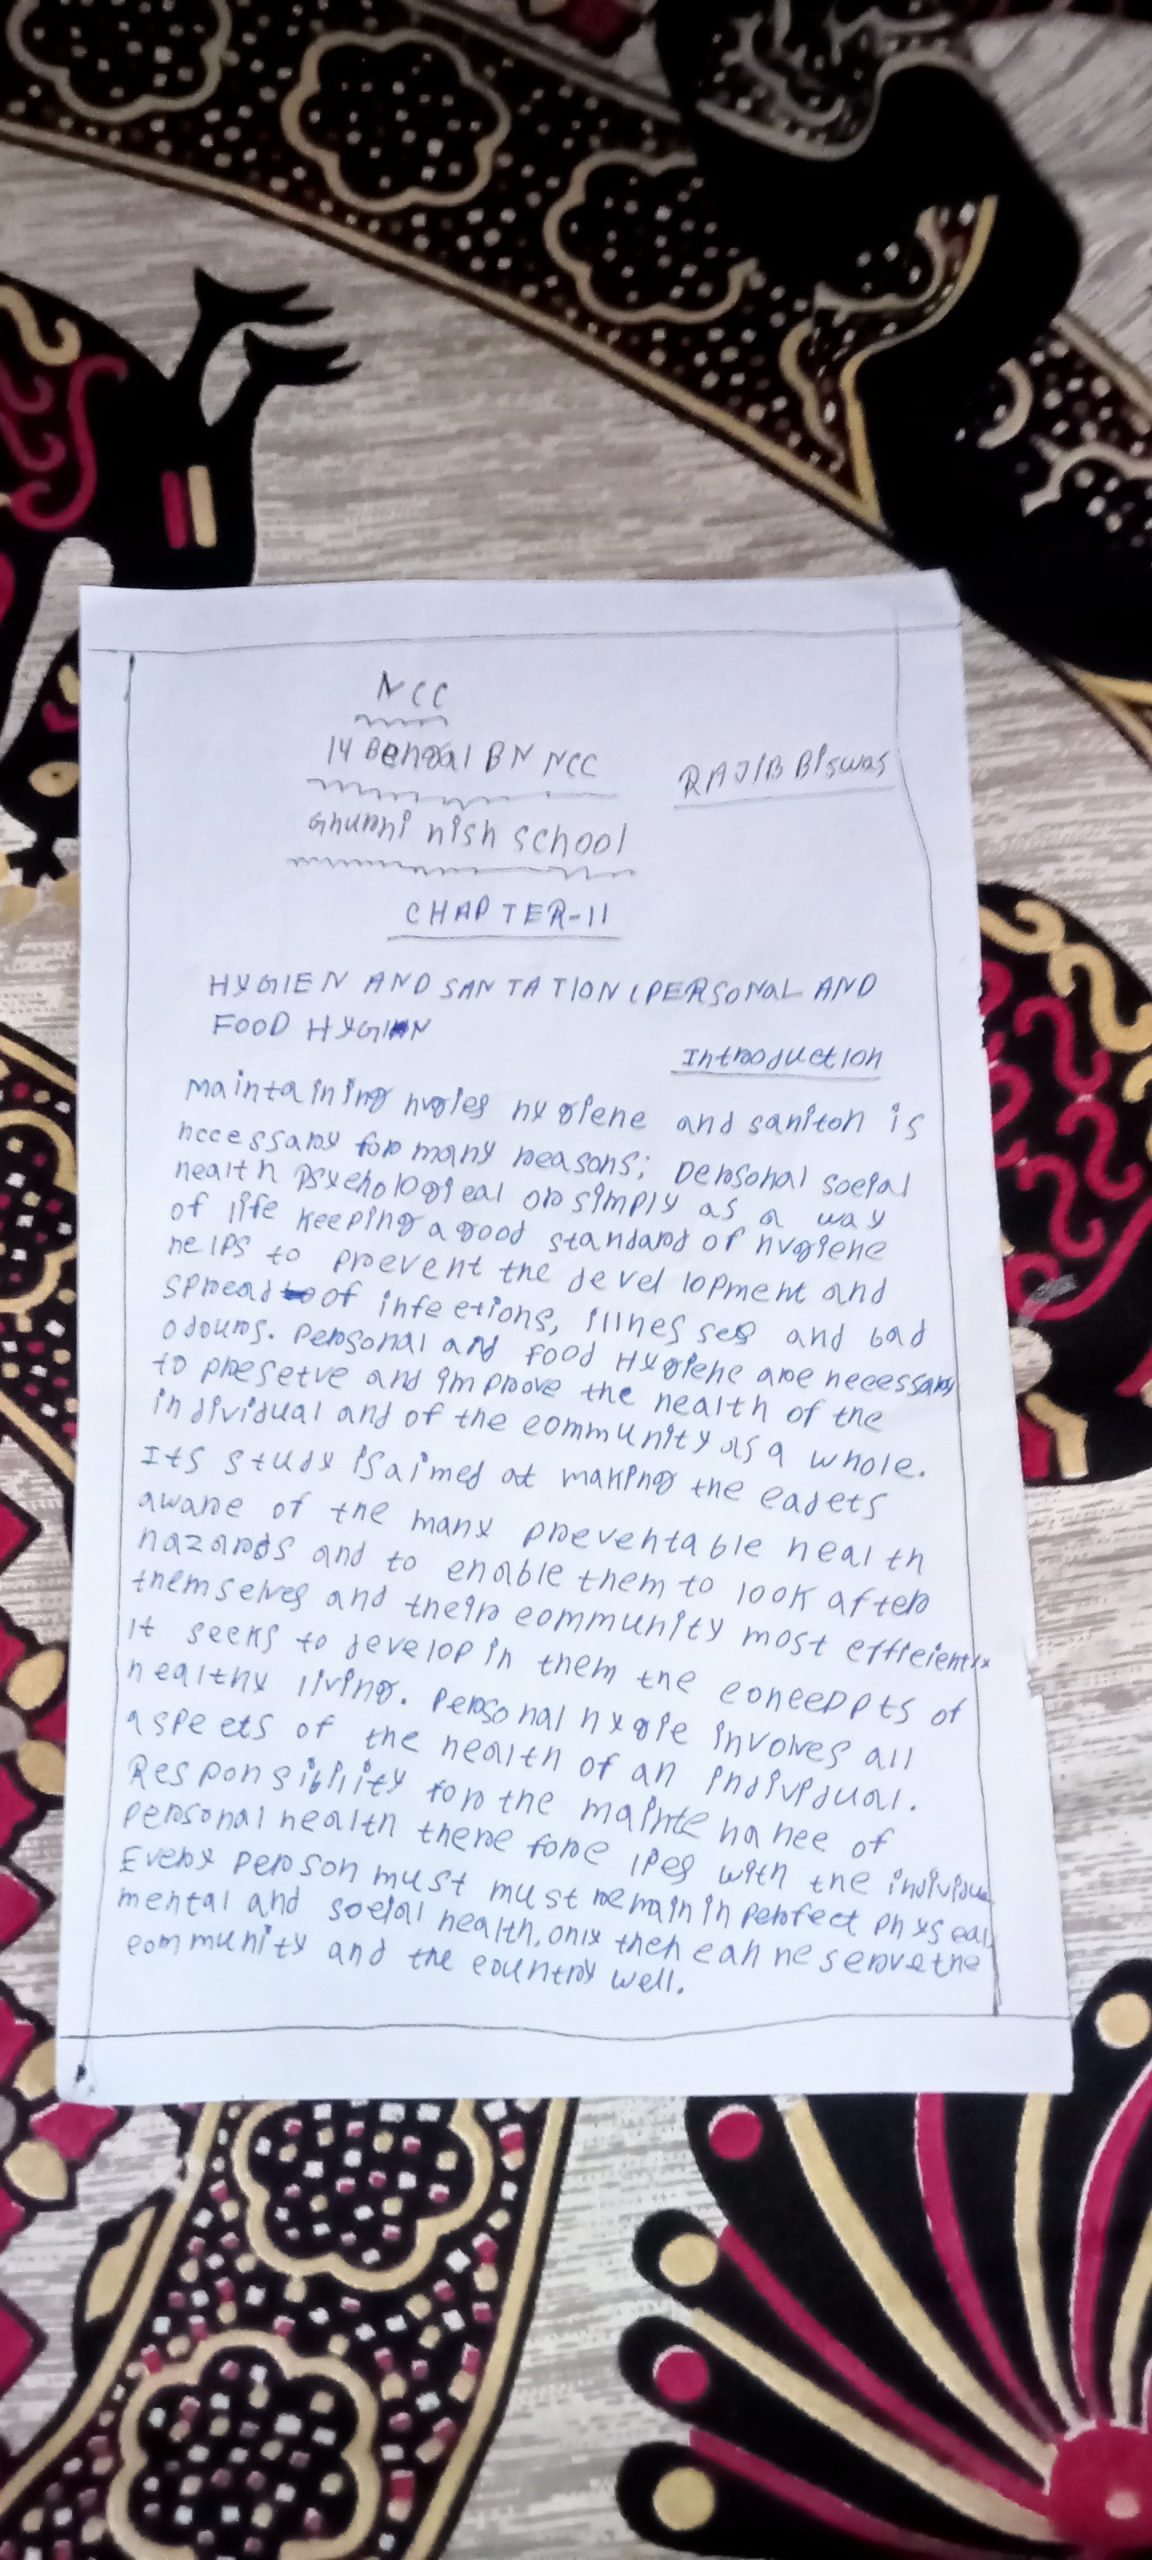 NCC
14 Bengal BN NCC
RAJIB BISwas
Ghurni high school
CHAPTER-11
HYGIEN AND SANTATION (PERSONAL AND
FOOD HYGIN
Introduction
maintaining hygies hygiene and saniton is
nccessary for many reasons; personal social
health psychological or simply as a way
of life keeping a good standard of hygiene
helps to prevent the devel lopment and
spread of infections, illnes ses and bad
odours. personal and food Hygiene are necessary
to presetve and improve the health of the
individual and of the community as a whole.
Its study is aimed at making the cadets
aware of the many preventable health
hazards and to enable them to look after
themselves and their community most efficiently
It seeks to develop in them the conceppts of
healthy living. personal hygie involves all
aspects of the health of an individual.
Responsibility for the mainte nance of
personal health there fore lies with the individu
Every person must must remain in perfect physcal
mental and social health, only then can he serve the
community and the country well.